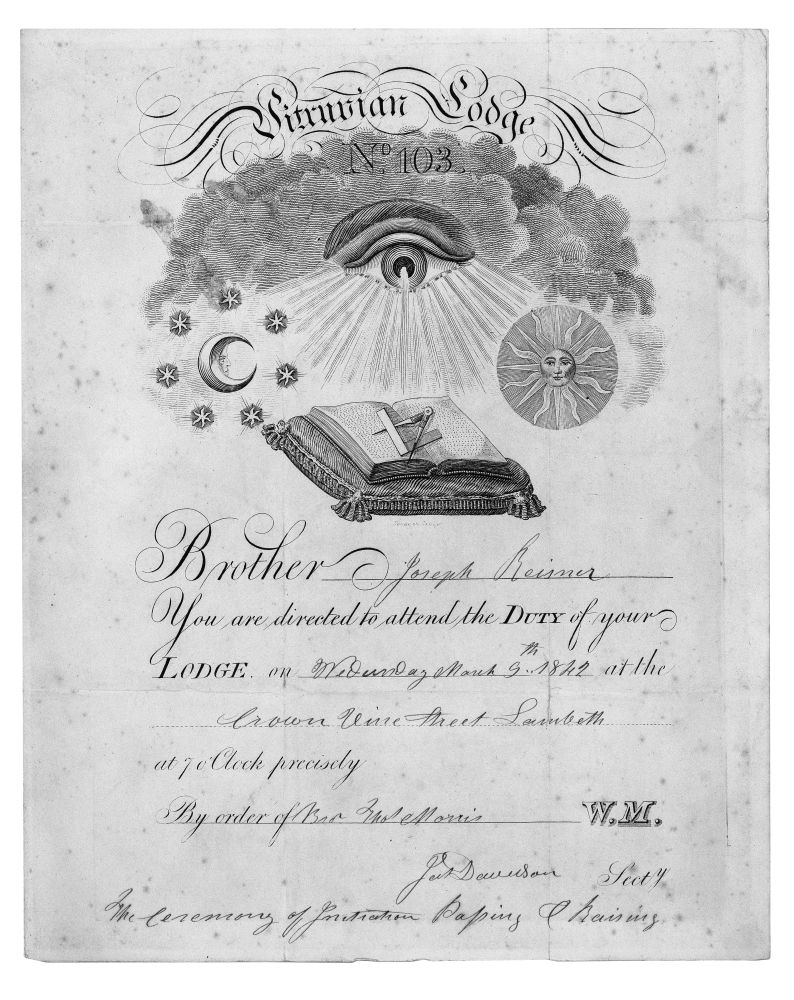 Vitruvian Lodge
No. 103.
Brother Joseph Reisner
You are directed to attend the DUTY of your
LODGE. on Wednesday March 9th 1842 at the
Crown Vine Street Lambeth
at 7 o'Clock precisely
By order of Bro Thos Morris W.M.
Davidson Secty
The Ceremony of Initiation Passing & Raising